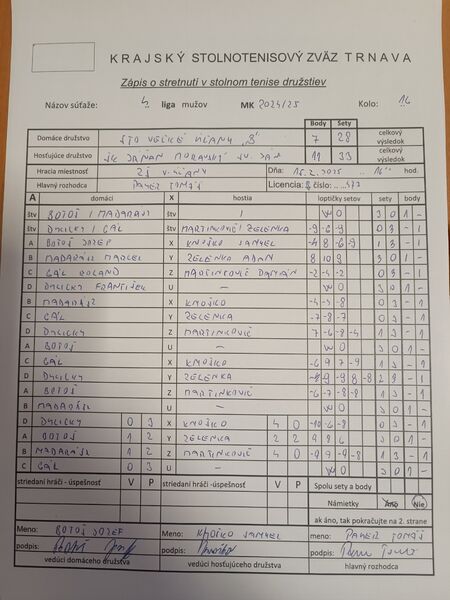 KRAJSKÝ STOLNOTENISOVÝ ZVÄZ TRNAVA
Zápis o stretnutí v stolnom tenise družstiev
Názov súťaže: liga mužov MK 2024/25 Kolo: 16
Body Sety
Domáce družstvo STO VEĽKÉ ÚĽANY "B" 7 28 celkový výsledok
Hosťujúce družstvo MORAVSKÝ SV. JÁN 11 33 celkový výsledok
Hracia miestnosť ZŠ V. ÚĽANY Dňa: hod.
Hlavný rozhodca TOMÁŠ Licencia číslo:
A domáci X hostia loptičky setov sety body
štv BOTOŠ / MADARÁSZ štv / WO 3 0 1 -
štv DYLICKÝ / GÁL štv MARTINKOVIČ / ZELENKA -9 -6 -9 0 3 - 1
A BOTOŠ JOZEF X KNOŠKO SAMUEL -4 8 -6 -9 1 3 - 1
B MADARÁSZ MARCEL Y ZELENKA ADAM 8 10 9 3 0 1 -
C GÁL ROLAND Z MARTINKOVIČ DAMIÁN -2 -4 -2 0 3 - 1
D DYLICKÝ FRANTIŠEK U - WO 3 0 1 -
B MADARÁSZ X KNOŠKO 0 3 - 1
C GÁL Y ZELENKA -7 -8 -7 0 3 - 1
D DYLICKÝ Z MARTINKOVIČ 7 -6 -8 -4 1 3 - 1
A BOTOŠ U - WO 3 0 1 -
C GÁL X KNOŠKO -6 9 -7 -9 1 3 - 1
D DYLICKÝ Y ZELENKA 9 -8 -8 2 3 - 1
A BOTOŠ Z MARTINKOVIČ -6 -7 -8 1 3 - 1
B MADARÁSZ U - WO 3 0 1 -
D DYLICKÝ 0 3 X KNOŠKO 4 0 -10 -6 -8 0 3 - 1
A BOTOŠ 1 2 Y ZELENKA 2 2 9 8 6 3 0 1 -
B MADARÁSZ 1 2 Z MARTINKOVIČ 4 0 9 -9 -8 1 3 - 1
C GÁL 0 3 U - WO 3 0 1 -
striedaní hráči - úspešnosť V P striedaní hráči - úspešnosť V P Spolu sety a body
Námietky Áno Nie
ak áno, tak pokračujte na 2. strane
Meno: BOTOŠ JOZEF Meno: KNOŠKO SAMUEL meno: TOMÁŠ
podpis: podpis: podpis:
vedúci domáceho družstva vedúci hosťujúceho družstva hlavný rozhodca